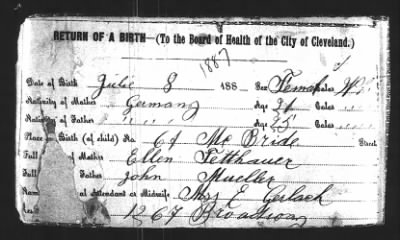 RETURN OF A BIRTH—(To the Board of Health of the City of Cleveland.)
1887
Date of Birth Julie 8 188 Sex Female Color W
Nativity of Mother Germany Age 31 Color
Nativity of Father " " " Age 35 Color
Place of Birth (of child) No. 64 Mc Bride Street
Full of Mother Ellen Fetthauer
Full Father John Mueller
Name of Attendant or Midwife Mrs E Gerlach
1267 Broadway